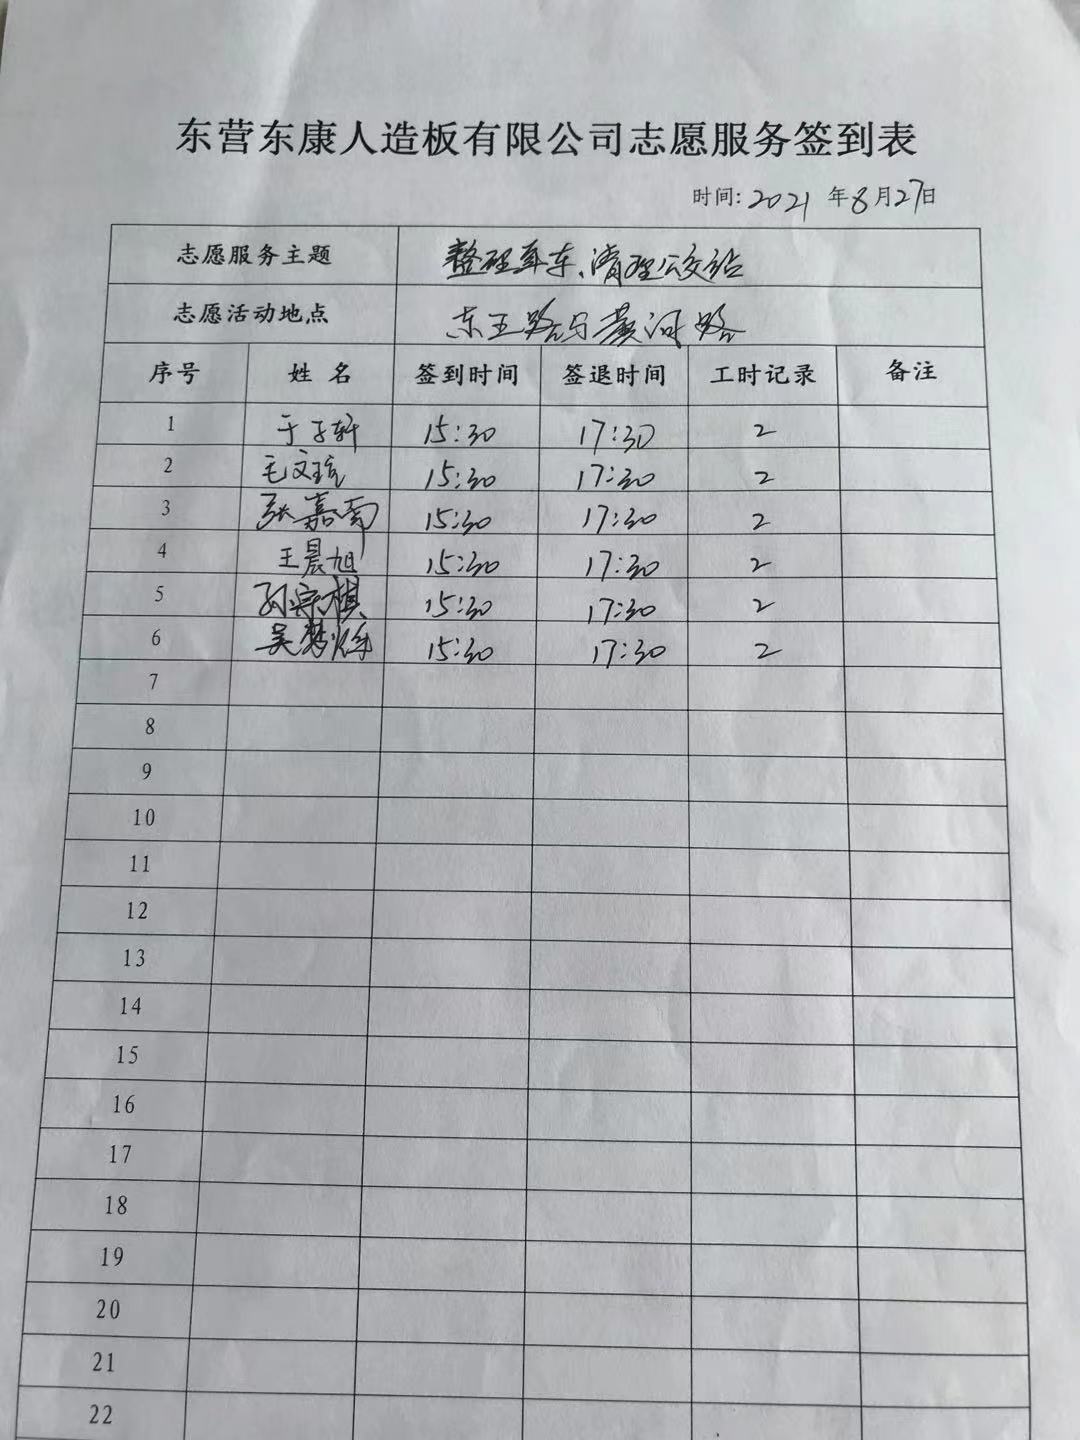 东营东康人造板有限公司志愿服务签到表
时间: 2021 年 8 月 27 日
志愿服务主题 整理单车、清理公交站
志愿活动地点 东五路与黄河路
序号 姓名 签到时间 签退时间 工时记录 备注
1 于子轩 15:30 17:30 2
2 毛文 15:30 17:30 2
3 张嘉雨 15:30 17:30 2
4 王晨旭 15:30 17:30 2
5 孙宗棋 15:30 17:30 2
6 吴梦 15:30 17:30 2
7
8
9
10
11
12
13
14
15
16
17
18
19
20
21
22